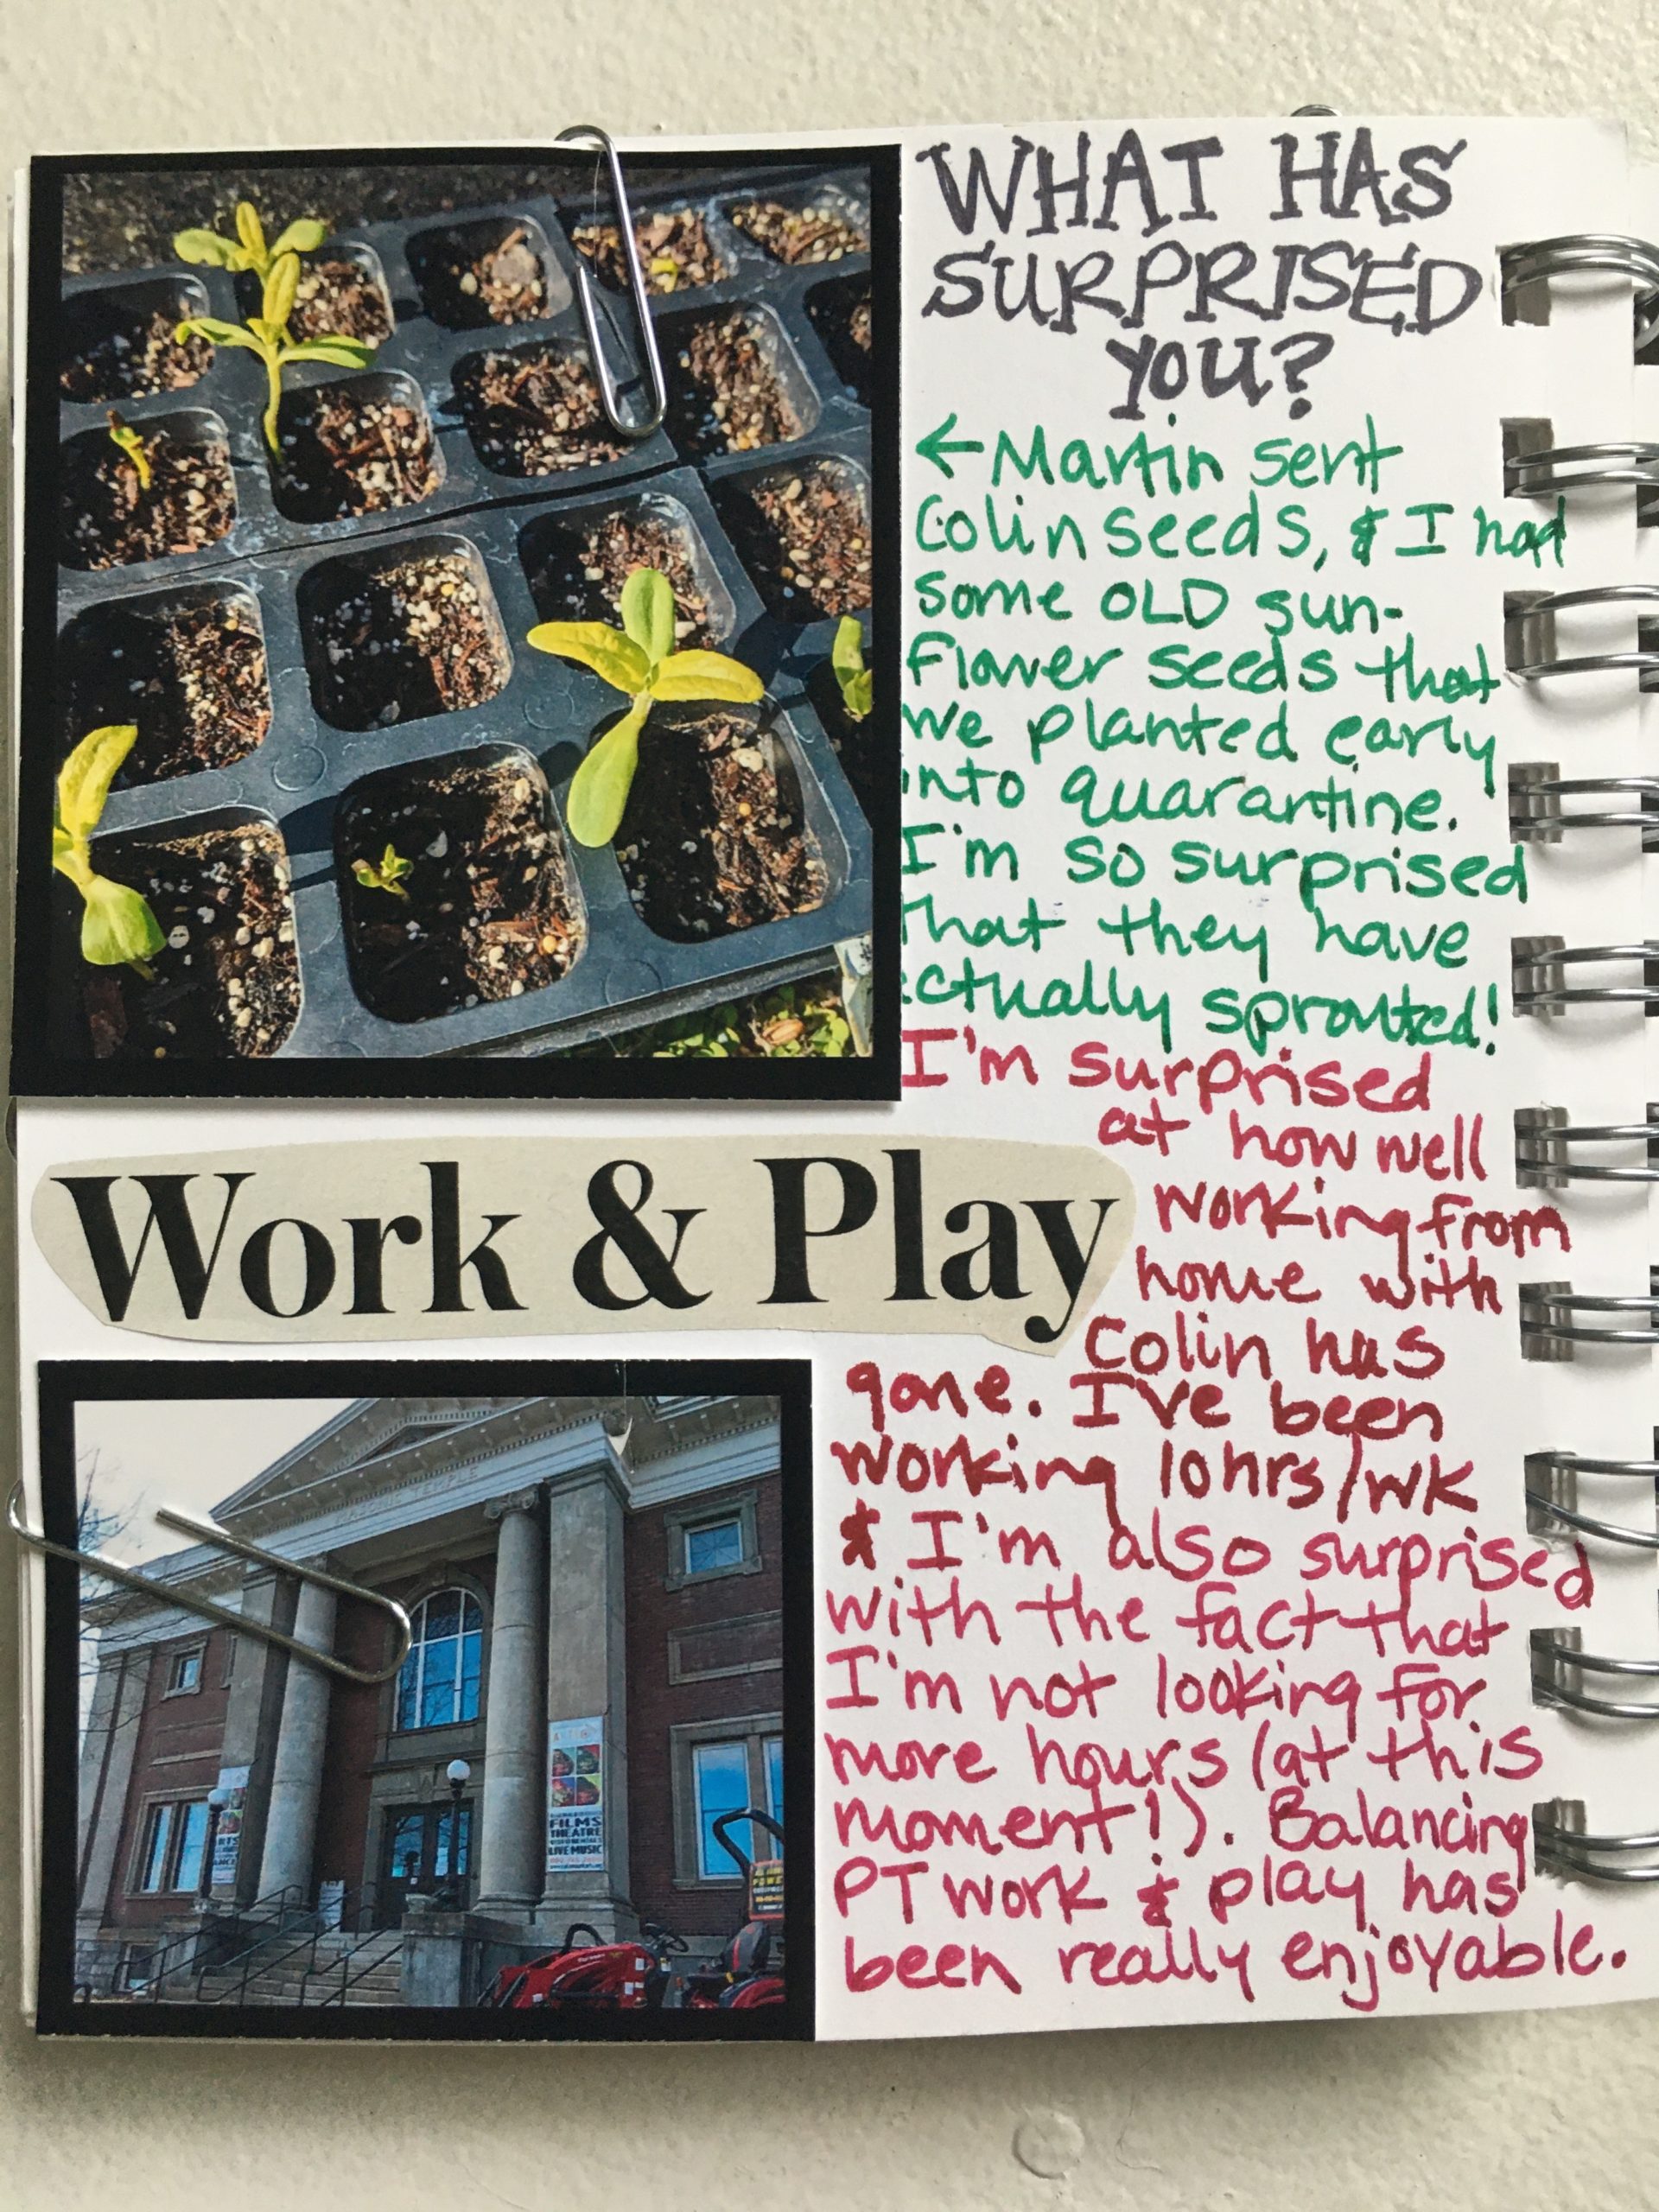 WHAT HAS
SURPRISED
YOU?
← Martin sent
Colin seeds, & I had
some OLD sun-
flower seeds that
we planted early
into quarantine.
I'm so surprised
that they have
actually sprouted!
I'm surprised
at how well
working from
home with
Colin has
gone. I've been
working 10hrs/wk
& I'm also surprised
with the fact that
I'm not looking for
more hours (at this
moment!). Balancing
PT work & play has
been really enjoyable.
Work & Play
TEMPLE
FILMS
THEATRE
LIVE MUSIC